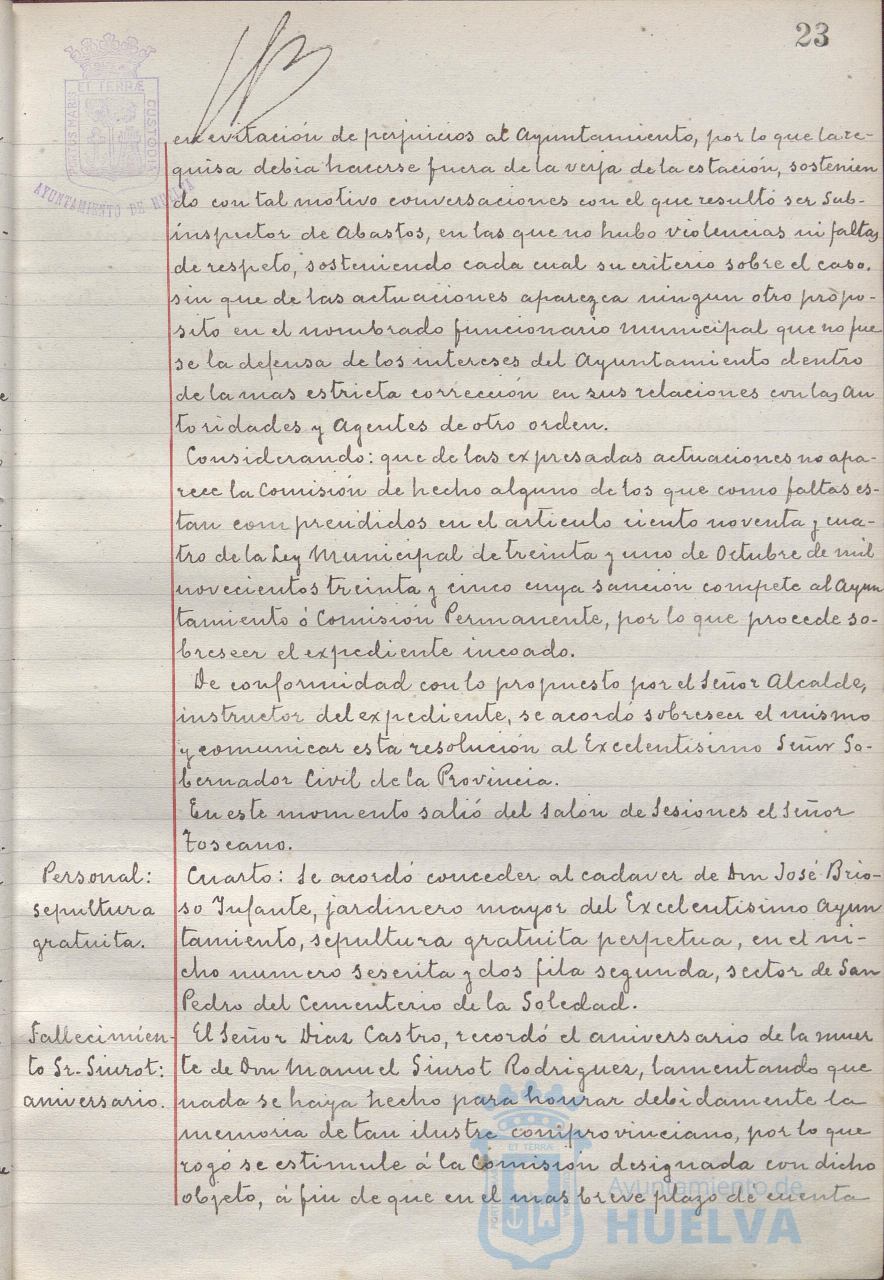 23
PORTUS MARIS ET TERRÆ CUSTODIA
AYUNTAMIENTO DE HUELVA
en evitación de perjuicios al Ayuntamiento, por lo que la re-
quisa debia hacerse fuera de la verja de la estación, sostenien
do con tal motivo conversaciones con el que resultó ser Sub-
inspector de Abastos, en las que no hubo violencias ni faltas
de respeto, sosteniendo cada cual su criterio sobre el caso.
sin que de las actuaciones aparezca ningun otro propo-
sito en el nombrado funcionario municipal que no fue
se la defensa de los intereses del Ayuntamiento dentro
de la mas estricta corrección en sus relaciones con las Au
toridades y Agentes de otro orden.
Considerando: que de las expresadas actuaciones no apa-
rece la Comisión de hecho alguno de los que como faltas es-
tan comprendidos en el articulo ciento noventa y cua-
tro de la Ley Municipal de treinta y uno de Octubre de mil
novecientos treinta y cinco cuya sanción compete al Ayun
tamiento ó Comisión Permanente, por lo que procede so-
breseer el expediente incoado.
De conformidad con lo propuesto por el Señor Alcalde,
instructor del expediente, se acordó sobreseer el mismo
y comunicar esta resolución al Excelentisimo Señor Go-
bernador Civil de la Provincia.
En este momento salió del Salón de Sesiones el Señor
Toscano.
Personal:
sepultura
gratuita.
Cuarto: Se acordó conceder al cadaver de Don José Brio-
so Infante, jardinero mayor del Excelentisimo Ayun
tamiento, sepultura gratuita perpetua, en el ni-
cho numero sesenta y dos fila segunda, sector de San
Pedro del Cementerio de la Soledad.
Fallecimien-
to Sr. Siurot:
aniversario.
El Señor Diaz Castro, recordó el aniversario de la muer
te de Don Manuel Siurot Rodriguez, lamentando que
nada se haya hecho para honrar debidamente la
memoria de tan ilustre comprovinciano, por lo que
rogó se estimule á la Comisión designada con dicho
objeto, á fin de que en el mas breve plazo de cuenta
Ayuntamiento de
HUELVA